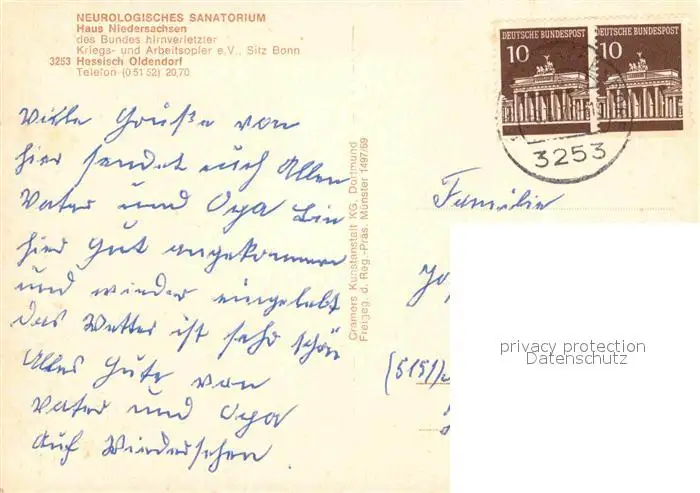 NEUROLOGISCHES SANATORIUM
Haus Niedersachsen
des Bundes hirnverletzter
Kriegs- und Arbeitsopfer e.V., Sitz Bonn
3253 Hessisch Oldendorf
Telefon (0 51 52) 20,70
Viele Grüße von
hier sendet euch Allen
Vater und Opa bin
hier gut angekommen
und wieder eingelebt
das Wetter ist sehr schön
Alles Gute von
Vater und Opa
Auf Wiedersehen.
Cramers Kunstanstalt KG, Dortmund
Freigeg. d. Reg.-Präs. Münster 1497/69
10 DEUTSCHE BUNDESPOST
10 DEUTSCHE BUNDESPOST
3253
Familie
(5151)
privacy protection
Datenschutz